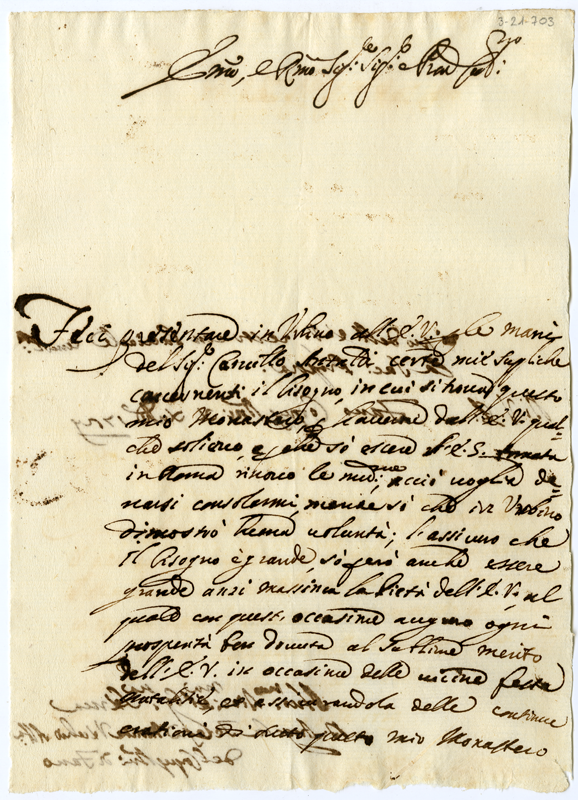 3-21-703
Emo, e Rmo Sigr. Sigr. e Pron
Feci presentare in Urbino all'E. V. per le mani
del Sigr. certe mie supliche
concernenti il bisogno, in cui si trova questo
mio Monastero, per haverne dall'E. V. qual
che solievo, e
in Roma rinovo le med.me acciò voglia de
narsi consolarmi, mentre sò che in Urbino
dimostrò buona volontà; l'assicuro che
il bisogno è grande, sò però anche essere
grande anzi massima la Pietà dell'E. V., al
quale con questa occasione auguro ogni
prosperità ben dovuta al sublime merito
dell'E. V. in occasione delle vicine feste
Natalizie, et assicurandola delle continue
orationi di tutto questo mio Monastero